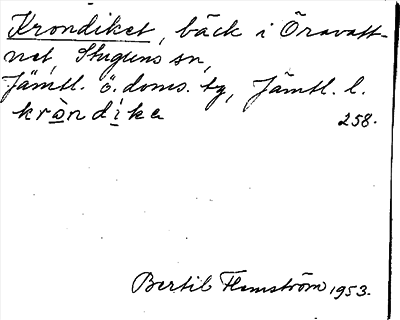 Krondiket, bäck i Öravatt-
net, Stuguns sn,
Jämtl. ö. doms. tg, Jämtl. l.
kròndìka
258.
Bertil Flemström 1953.